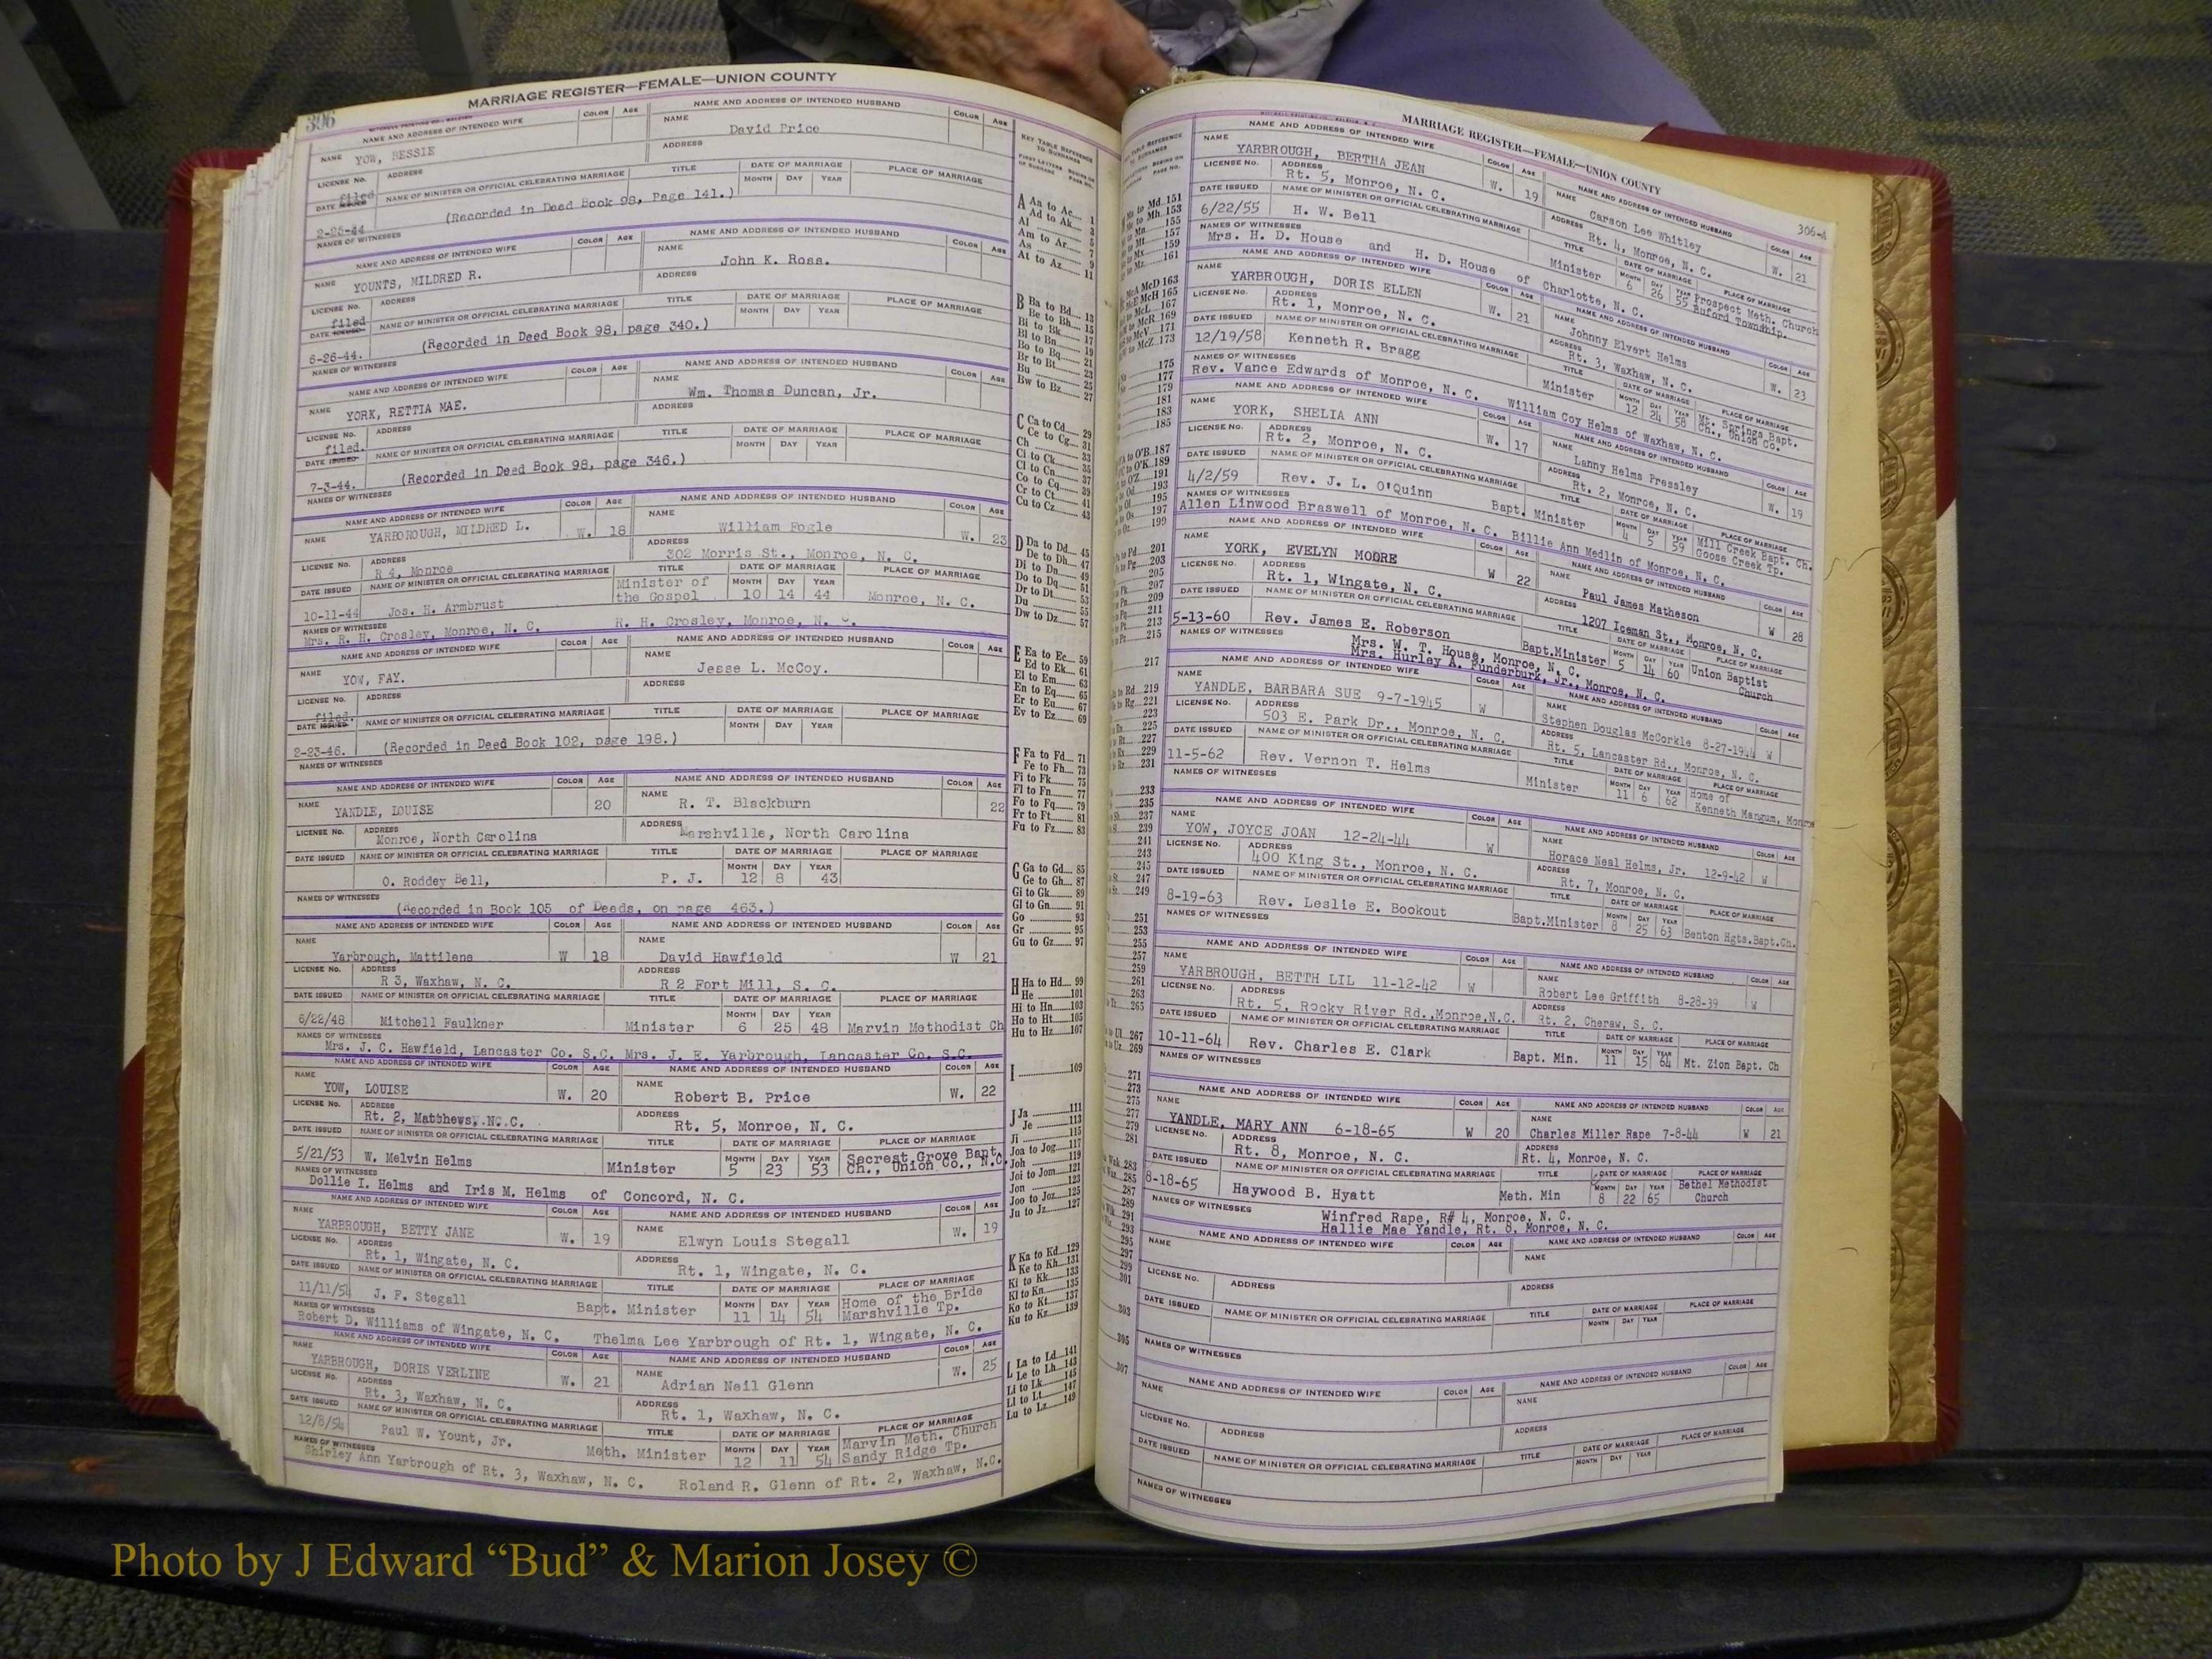 MARRIAGE REGISTER—FEMALE—UNION COUNTY
NAME AND ADDRESS OF INTENDED WIFE COLOR AGE NAME AND ADDRESS OF INTENDED HUSBAND COLOR AGE
NAME YOW, BESSIE NAME David Price
LICENSE No. ADDRESS ADDRESS
DATE ISSUED filed NAME OF MINISTER OR OFFICIAL CELEBRATING MARRIAGE TITLE DATE OF MARRIAGE MONTH DAY YEAR PLACE OF MARRIAGE
2-25-44 (Recorded in Deed Book 98, Page 141.)
NAMES OF WITNESSES
NAME AND ADDRESS OF INTENDED WIFE COLOR AGE NAME AND ADDRESS OF INTENDED HUSBAND COLOR AGE
NAME YOUNTS, MILDRED R. NAME John K. Ross.
LICENSE No. ADDRESS ADDRESS
DATE ISSUED filed NAME OF MINISTER OR OFFICIAL CELEBRATING MARRIAGE TITLE DATE OF MARRIAGE MONTH DAY YEAR PLACE OF MARRIAGE
6-26-44. (Recorded in Deed Book 98, page 340.)
NAMES OF WITNESSES
NAME AND ADDRESS OF INTENDED WIFE COLOR AGE NAME AND ADDRESS OF INTENDED HUSBAND COLOR AGE
NAME YORK, RETTIA MAE. NAME Wm. Thomas Duncan, Jr.
LICENSE No. ADDRESS ADDRESS
DATE ISSUED filed. NAME OF MINISTER OR OFFICIAL CELEBRATING MARRIAGE TITLE DATE OF MARRIAGE MONTH DAY YEAR PLACE OF MARRIAGE
7-3-44. (Recorded in Deed Book 98, page 346.)
NAMES OF WITNESSES
NAME AND ADDRESS OF INTENDED WIFE COLOR AGE NAME AND ADDRESS OF INTENDED HUSBAND COLOR AGE
NAME YARBOROUGH, MILDRED L. W. 18 NAME William Fogle W. 23
LICENSE No. ADDRESS R 4, Monroe ADDRESS 302 Morris St., Monroe, N. C.
DATE ISSUED NAME OF MINISTER OR OFFICIAL CELEBRATING MARRIAGE TITLE DATE OF MARRIAGE MONTH DAY YEAR PLACE OF MARRIAGE
10-11-44 Jos. H. Armbrust Minister of the Gospel 10 14 44 Monroe, N. C.
NAMES OF WITNESSES Mrs. R. H. Crosley, Monroe, N. C. R. H. Crosley, Monroe, N. C.
NAME AND ADDRESS OF INTENDED WIFE COLOR AGE NAME AND ADDRESS OF INTENDED HUSBAND COLOR AGE
NAME YOW, FAY. NAME Jesse L. McCoy.
LICENSE No. ADDRESS ADDRESS
DATE ISSUED filed. NAME OF MINISTER OR OFFICIAL CELEBRATING MARRIAGE TITLE DATE OF MARRIAGE MONTH DAY YEAR PLACE OF MARRIAGE
2-23-46. (Recorded in Deed Book 102, page 198.)
NAMES OF WITNESSES
NAME AND ADDRESS OF INTENDED WIFE COLOR AGE NAME AND ADDRESS OF INTENDED HUSBAND COLOR AGE
NAME YANDLE, LOUISE 20 NAME R. T. Blackburn 22
LICENSE No. ADDRESS Monroe, North Carolina ADDRESS Marshville, North Carolina
DATE ISSUED NAME OF MINISTER OR OFFICIAL CELEBRATING MARRIAGE TITLE DATE OF MARRIAGE MONTH DAY YEAR PLACE OF MARRIAGE
O. Roddey Bell, P. J. 12 8 43
NAMES OF WITNESSES (Recorded in Book 105 of Deeds, on page 463.)
NAME AND ADDRESS OF INTENDED WIFE COLOR AGE NAME AND ADDRESS OF INTENDED HUSBAND COLOR AGE
NAME Yarbrough, Mattilene W 18 NAME David Hawfield W 21
LICENSE No. ADDRESS R 3, Waxhaw, N. C. ADDRESS R 2 Fort Mill, S. C.
DATE ISSUED NAME OF MINISTER OR OFFICIAL CELEBRATING MARRIAGE TITLE DATE OF MARRIAGE MONTH DAY YEAR PLACE OF MARRIAGE
6/22/48 Mitchell Faulkner Minister 6 25 48 Marvin Methodist Ch
NAMES OF WITNESSES Mrs. J. C. Hawfield, Lancaster Co. S.C. Mrs. J. E. Yarbrough, Lancaster Co. S.C.
NAME AND ADDRESS OF INTENDED WIFE COLOR AGE NAME AND ADDRESS OF INTENDED HUSBAND COLOR AGE
NAME YOW, LOUISE W. 20 NAME Robert B. Price W. 22
LICENSE No. ADDRESS Rt. 2, Matthews, N.C. ADDRESS Rt. 5, Monroe, N. C.
DATE ISSUED NAME OF MINISTER OR OFFICIAL CELEBRATING MARRIAGE TITLE DATE OF MARRIAGE MONTH DAY YEAR PLACE OF MARRIAGE
5/21/53 W. Melvin Helms Minister 5 23 53 Secrest Grove Bapt. Ch., Union Co., N.C.
NAMES OF WITNESSES Dollie I. Helms and Iris M. Helms of Concord, N. C.
NAME AND ADDRESS OF INTENDED WIFE COLOR AGE NAME AND ADDRESS OF INTENDED HUSBAND COLOR AGE
NAME YARBROUGH, BETTY JANE W. 19 NAME Elwyn Louis Stegall W. 19
LICENSE No. ADDRESS Rt. 1, Wingate, N. C. ADDRESS Rt. 1, Wingate, N. C.
DATE ISSUED NAME OF MINISTER OR OFFICIAL CELEBRATING MARRIAGE TITLE DATE OF MARRIAGE MONTH DAY YEAR PLACE OF MARRIAGE
11/11/54 J. F. Stegall Bapt. Minister 11 14 54 Home of the Bride Marshville Tp.
NAMES OF WITNESSES Robert D. Williams of Wingate, N. C. Thelma Lee Yarbrough of Rt. 1, Wingate, N. C.
NAME AND ADDRESS OF INTENDED WIFE COLOR AGE NAME AND ADDRESS OF INTENDED HUSBAND COLOR AGE
NAME YARBROUGH, DORIS VERLINE W. 21 NAME Adrian Neil Glenn W. 25
LICENSE No. ADDRESS Rt. 3, Waxhaw, N. C. ADDRESS Rt. 1, Waxhaw, N. C.
DATE ISSUED NAME OF MINISTER OR OFFICIAL CELEBRATING MARRIAGE TITLE DATE OF MARRIAGE MONTH DAY YEAR PLACE OF MARRIAGE
12/8/54 Paul W. Yount, Jr. Meth. Minister 12 11 54 Marvin Meth. Church Sandy Ridge Tp.
NAMES OF WITNESSES Shirley Ann Yarbrough of Rt. 3, Waxhaw, N. C. Roland R. Glenn of Rt. 2, Waxhaw, N.C.
KEY TABLE REFERENCE TO SURNAMES
A Aa to Ac 1
Ad to Ak 3
Al 5
Am to Ar 7
As 9
At to Az 11
B Ba to Bd 13
Be to Bh 15
Bi to Bk 17
Bl to Bn 19
Bo to Bq 21
Br to Bt 23
Bu 25
Bw to Bz 27
C Ca to Cd 29
Ce to Cg 31
Ch 33
Ci to Ck 35
Cl to Cn 37
Co to Cq 39
Cr to Ct 41
Cu to Cz 43
D Da to Dd 45
De to Dh 47
Di to Dn 49
Do to Dq 51
Dr to Dt 53
Du 55
Dw to Dz 57
E Ea to Ec 59
Ed to Ek 61
El to Em 63
En to Eq 65
Er to Eu 67
Ev to Ez 69
F Fa to Fd 71
Fe to Fh 73
Fi to Fk 75
Fl to Fn 77
Fo to Fq 79
Fr to Ft 81
Fu to Fz 83
G Ga to Gd 85
Ge to Gh 87
Gi to Gk 89
Gl to Gn 91
Go 93
Gr 95
Gu to Gz 97
H Ha to Hd 99
He 101
Hi to Hn 103
Ho to Ht 105
Hu to Hz 107
I 109
J Ja 111
Je 113
Ji 115
Joa to Jog 117
Joh 119
Joi to Jom 121
Jon 123
Joo to Joz 125
Ju to Jz 127
K Ka to Kd 129
Ke to Kh 131
Ki to Kk 133
Kl to Kn 135
Ko to Kt 137
Ku to Kz 139
L La to Ld 141
Le to Lh 143
Li to Lk 145
Ll to Lt 147
Lu to Lz 149
MARRIAGE REGISTER—FEMALE—UNION COUNTY
306-A
NAME AND ADDRESS OF INTENDED WIFE COLOR AGE NAME AND ADDRESS OF INTENDED HUSBAND COLOR AGE
NAME YARBROUGH, BERTHA JEAN W. 19 NAME Carson Lee Whitley W. 21
LICENSE No. ADDRESS Rt. 5, Monroe, N. C. ADDRESS Rt. 4, Monroe, N. C.
DATE ISSUED NAME OF MINISTER OR OFFICIAL CELEBRATING MARRIAGE TITLE DATE OF MARRIAGE MONTH DAY YEAR PLACE OF MARRIAGE
6/22/55 H. W. Bell Minister 6 26 55 Prospect Meth. Church Buford Township.
NAMES OF WITNESSES Mrs. H. D. House and H. D. House of Charlotte, N. C.
NAME AND ADDRESS OF INTENDED WIFE COLOR AGE NAME AND ADDRESS OF INTENDED HUSBAND COLOR AGE
NAME YARBROUGH, DORIS ELLEN W. 21 NAME Johnny Elvert Helms W. 23
LICENSE No. ADDRESS Rt. 1, Monroe, N. C. ADDRESS Rt. 3, Waxhaw, N. C.
DATE ISSUED NAME OF MINISTER OR OFFICIAL CELEBRATING MARRIAGE TITLE DATE OF MARRIAGE MONTH DAY YEAR PLACE OF MARRIAGE
12/19/58 Kenneth R. Bragg Minister 12 24 58 Mt. Springs Bapt. Ch., Union Co.
NAMES OF WITNESSES Rev. Vance Edwards of Monroe, N. C. William Coy Helms of Waxhaw, N. C.
NAME AND ADDRESS OF INTENDED WIFE COLOR AGE NAME AND ADDRESS OF INTENDED HUSBAND COLOR AGE
NAME YORK, SHELIA ANN W. 17 NAME Lanny Helms Pressley W. 19
LICENSE No. ADDRESS Rt. 2, Monroe, N. C. ADDRESS Rt. 2, Monroe, N. C.
DATE ISSUED NAME OF MINISTER OR OFFICIAL CELEBRATING MARRIAGE TITLE DATE OF MARRIAGE MONTH DAY YEAR PLACE OF MARRIAGE
4/2/59 Rev. J. L. O'Quinn Bapt. Minister 4 5 59 Mill Creek Bapt. Ch. Goose Creek Tp.
NAMES OF WITNESSES Allen Linwood Braswell of Monroe, N. C. Billie Ann Medlin of Monroe, N. C.
NAME AND ADDRESS OF INTENDED WIFE COLOR AGE NAME AND ADDRESS OF INTENDED HUSBAND COLOR AGE
NAME YORK, EVELYN MOORE W 22 NAME Paul James Matheson W 28
LICENSE No. ADDRESS Rt. 1, Wingate, N. C. ADDRESS 1207 Iceman St., Monroe, N. C.
DATE ISSUED NAME OF MINISTER OR OFFICIAL CELEBRATING MARRIAGE TITLE DATE OF MARRIAGE MONTH DAY YEAR PLACE OF MARRIAGE
5-13-60 Rev. James E. Roberson Bapt.Minister 5 14 60 Union Baptist Church
NAMES OF WITNESSES Mrs. W. T. House, Monroe, N. C.
Mrs. Hurley A. Funderburk, Jr., Monroe, N. C.
NAME AND ADDRESS OF INTENDED WIFE COLOR AGE NAME AND ADDRESS OF INTENDED HUSBAND
NAME YANDLE, BARBARA SUE 9-7-1945 W NAME Stephen Douglas McCorkle 8-27-1944 W
LICENSE No. ADDRESS 503 E. Park Dr., Monroe, N. C. ADDRESS Rt. 5, Lancaster Rd., Monroe, N. C.
DATE ISSUED NAME OF MINISTER OR OFFICIAL CELEBRATING MARRIAGE TITLE DATE OF MARRIAGE MONTH DAY YEAR PLACE OF MARRIAGE
11-5-62 Rev. Vernon T. Helms Minister 11 6 62 Home of Kenneth Mangum, Monroe
NAMES OF WITNESSES
NAME AND ADDRESS OF INTENDED WIFE COLOR AGE NAME AND ADDRESS OF INTENDED HUSBAND COLOR AGE
NAME YOW, JOYCE JOAN 12-24-44 W NAME Horace Neal Helms, Jr. 12-9-42 W
LICENSE No. ADDRESS 400 King St., Monroe, N. C. ADDRESS Rt. 7, Monroe, N. C.
DATE ISSUED NAME OF MINISTER OR OFFICIAL CELEBRATING MARRIAGE TITLE DATE OF MARRIAGE MONTH DAY YEAR PLACE OF MARRIAGE
8-19-63 Rev. Leslie E. Bookout Bapt.Minister 8 25 63 Benton Hgts.Bapt.Ch.
NAMES OF WITNESSES
NAME AND ADDRESS OF INTENDED WIFE COLOR AGE NAME AND ADDRESS OF INTENDED HUSBAND COLOR AGE
NAME YARBROUGH, BETTH LIL 11-12-42 W NAME Robert Lee Griffith 8-28-39 W
LICENSE No. ADDRESS Rt. 5, Rocky River Rd.,Monroe,N.C. ADDRESS Rt. 2, Cheraw, S. C.
DATE ISSUED NAME OF MINISTER OR OFFICIAL CELEBRATING MARRIAGE TITLE DATE OF MARRIAGE MONTH DAY YEAR PLACE OF MARRIAGE
10-11-64 Rev. Charles E. Clark Bapt. Min. 11 15 64 Mt. Zion Bapt. Ch
NAMES OF WITNESSES
NAME AND ADDRESS OF INTENDED WIFE COLOR AGE NAME AND ADDRESS OF INTENDED HUSBAND COLOR AGE
NAME YANDLE, MARY ANN 6-18-65 W 20 NAME Charles Miller Rape 7-8-44 W 21
LICENSE No. ADDRESS Rt. 8, Monroe, N. C. ADDRESS Rt. 4, Monroe, N. C.
DATE ISSUED NAME OF MINISTER OR OFFICIAL CELEBRATING MARRIAGE TITLE DATE OF MARRIAGE MONTH DAY YEAR PLACE OF MARRIAGE
8-18-65 Haywood B. Hyatt Meth. Min 8 22 65 Bethel Methodist Church
NAMES OF WITNESSES Winfred Rape, R# 4, Monroe, N. C.
Hallie Mae Yandle, Rt. 8, Monroe, N. C.
NAME AND ADDRESS OF INTENDED WIFE COLOR AGE NAME AND ADDRESS OF INTENDED HUSBAND COLOR AGE
NAME NAME
LICENSE No. ADDRESS ADDRESS
DATE ISSUED NAME OF MINISTER OR OFFICIAL CELEBRATING MARRIAGE TITLE DATE OF MARRIAGE MONTH DAY YEAR PLACE OF MARRIAGE
NAMES OF WITNESSES
NAME AND ADDRESS OF INTENDED WIFE COLOR AGE NAME AND ADDRESS OF INTENDED HUSBAND COLOR AGE
NAME NAME
LICENSE No. ADDRESS ADDRESS
DATE ISSUED NAME OF MINISTER OR OFFICIAL CELEBRATING MARRIAGE TITLE DATE OF MARRIAGE MONTH DAY YEAR PLACE OF MARRIAGE
NAMES OF WITNESSES
Photo by J Edward “Bud” & Marion Josey ©